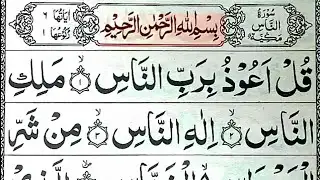 سُوْرَةُ النَّاسِ مَكِّيَّةٌ بِسْمِ اللهِ الرَّحْمٰنِ الرَّحِيْمِ اٰيَاتُهَا ٦ رُكُوْعُهَا ١
قُلْ اَعُوْذُ بِرَبِّ النَّاسِ ۙ﴿۱﴾ مَلِكِ
النَّاسِ ۙ﴿۲﴾ اِلٰهِ النَّاسِ ۙ﴿۳﴾ مِنْ شَرِّ